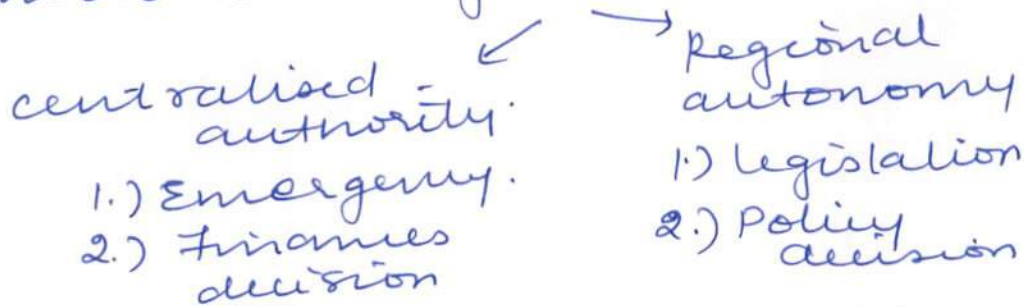 centralised
authority.
1.) Emergency.
2.) Finances
decision
Regional
autonomy
1.) Legislation
2.) Policy
decision